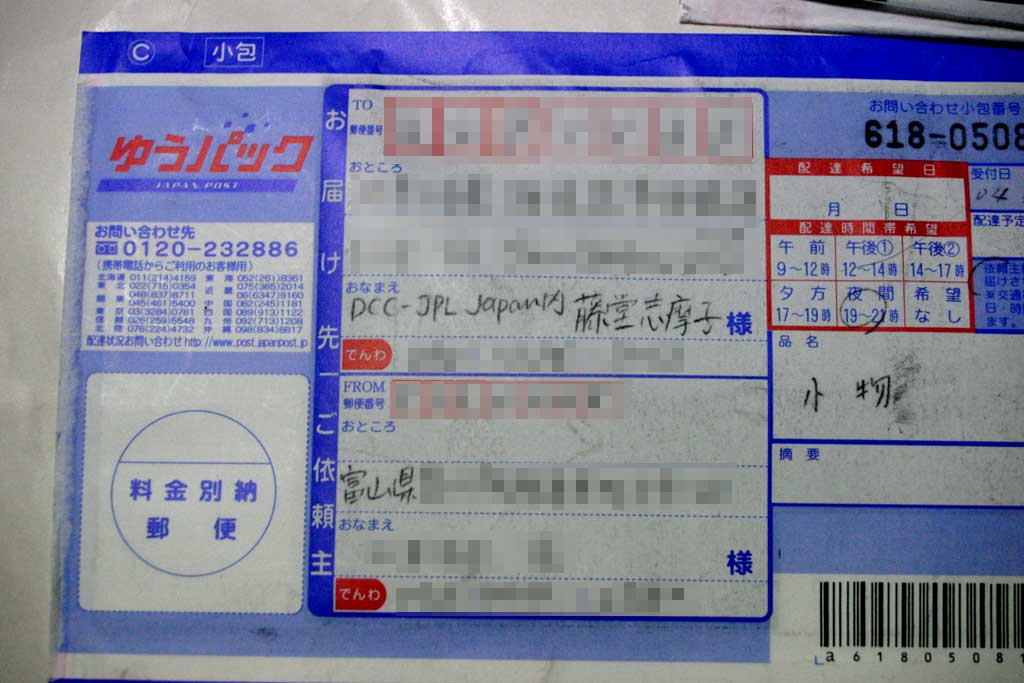 C 小包
ゆうパック
JAPAN POST
お問い合わせ先
0120-232886
(携帯電話からご利用のお客様用)
北海道 011(214)4159 東海 052(261)8361
東北 022(715)0354 近畿 075(365)2014
048(837)8711 06(6347)9160
関東 045(461)5400 中国 082(245)1181
東京 03(3284)0781 四国 089(913)1122
信越 026(259)5548 九州 092(713)1208
北陸 076(224)4732 沖縄 098(834)8817
配達状況お問い合わせ http://www.post.japanpost.jp
料金別納
郵便
お届け先
ご依頼主
TO
郵便番号
おところ
おなまえ
DCC-JPL Japan内 藤堂志摩子 様
でんわ
FROM
郵便番号
おところ
富山県
おなまえ
様
でんわ
お問い合わせ小包番号
618-0508
配達希望日
月 日
配達時間帯希望
午前 午後① 午後②
9~12時 12~14時 14~17時
夕方 夜間 希望
17~19時 19~21時 なし
受付日
04
配達予定
依頼主
品名
小物
摘要
a6180508